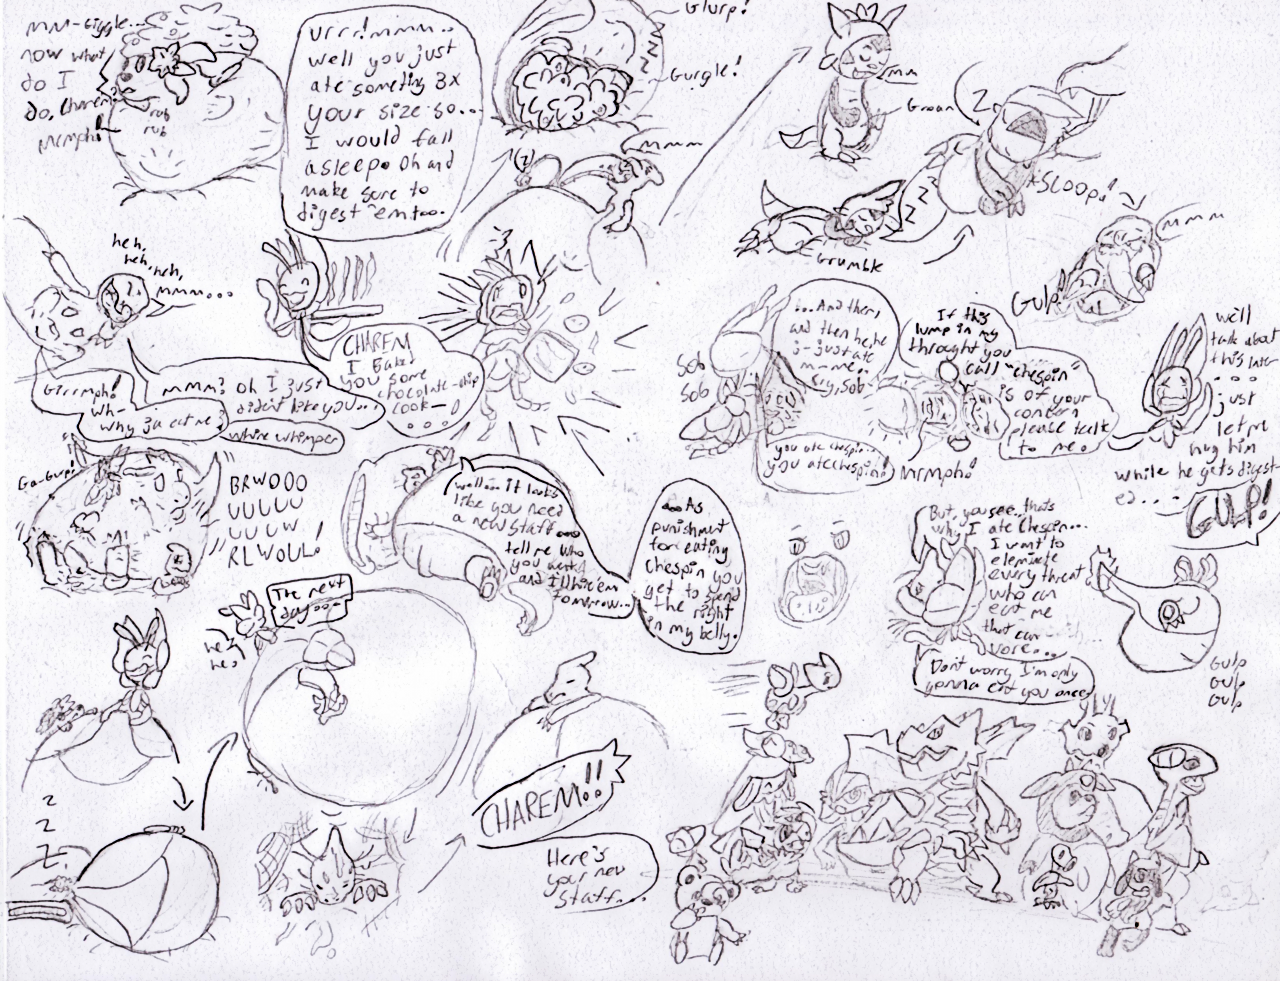 mm-Giggle...
now what
do I
do, Charem?
Mrmph!
rub
rub
Urrr!mmm..
well you just
ate someting 3x
your size so...
I would fall
asleep. Oh and
make sure to
digest 'em too.
Glurp!
Gurgle!
mmm
mm
Groan
Z
*SLOOP!
mmm
Grumble
Z
Z
Z
GULP!
heh,
heh, heh,
mmm...
Grrrmph!
Wh-
why ja eat me?
mmm? Oh I just
dident like you...
whine whimper
CHAREM
I bake
you some
chocolate-chip
cook-
...
Sob
Sob
...And then,
and then he, he
j-just ate
m-me..
Cry, Sob
you ate chespin..
you ate chespin!
If this
lump in my
throught you
call "chespin"
is of your
concern
please talk
to me.
Mrmph!
we'll
talk about
this later
....
just
let me
hug him
while he gets digest-
ed....
GULP!
Ga-Gurp!
BRWOOO
UUUUU
UUUW
RLWOUL!
well... it looks
like you need
a new staff...
tell me who
you want
and I'll hit 'em
tomorrow...
...As
punishment
for eating
chespin you
get to spend
the night
in my belly.
But, you see.. thats
why I ate Chespin...
I want to
elemenate
every threat
who can
eat me
that can
vore...
Don't worry, I'm only
gonna eat you once
Gulp
Gulp
Gulp
The next
day...
he,
he,
z
z
z
CHAREM!!
Here's
your new
staff...